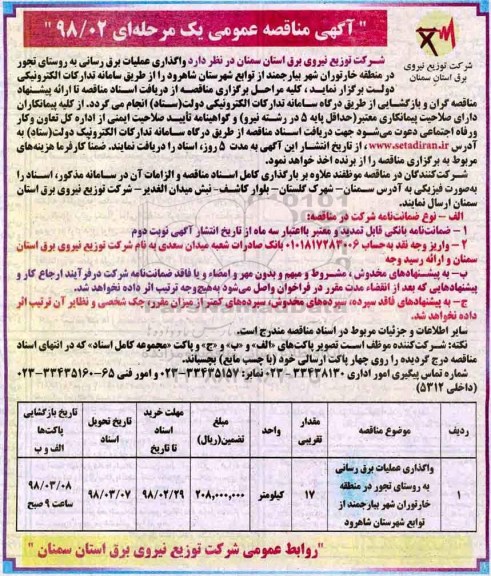 " آگهی مناقصه عمومی یک مرحله‌ای ۹۸/۰۲ "
شرکت توزیع نیروی
برق استان سمنان
شرکت توزیع نیروی برق استان سمنان در نظر دارد واگذاری عملیات برق رسانی به روستای تجور
در منطقه خارتوران شهر بیارجمند از توابع شهرستان شاهرود را از طریق سامانه تدارکات الکترونیکی
دولت برگزار نماید، کلیه مراحل برگزاری مناقصه از دریافت اسناد مناقصه تا ارائه پیشنهاد
مناقصه گران و بازگشایی از طریق درگاه سامانه تدارکات الکترونیکی دولت(ستاد) انجام می گردد. از کلیه پیمانکاران
دارای صلاحیت پیمانکاری معتبر(حداقل پایه ۵ در رشته نیرو) و گواهینامه تأیید صلاحیت ایمنی از اداره کل تعاون وکار
ورفاه اجتماعی دعوت می‌شود جهت دریافت اسناد مناقصه از طریق درگاه سامانه تدارکات الکترونیک دولت(ستاد) به
آدرس www.setadiran.ir، از تاریخ انتشار این آگهی به مدت ۵ روز، اسناد را دریافت نمایند. ضمنا کارفرما هزینه‌های
مربوط به برگزاری مناقصه را از برنده اخذ خواهد نمود.
شرکت‌کنندگان در مناقصه موظفند علاوه بر بارگذاری کامل اسناد مناقصه و الزامات آن در سامانه مذکور، اسناد را
به‌صورت فیزیکی به آدرس سمنان– شهرک گلستان– بلوار کاشف– نبش میدان الغدیر– شرکت توزیع نیروی برق استان
سمنان ارسال نمایند.
الف – نوع ضمانت‌نامه شرکت در مناقصه:
۱ – ضمانت‌نامه بانکی قابل تمدید و معتبر بااعتبار سه ماه از تاریخ انتشار آگهی نوبت دوم
۲ – واریز وجه نقد به‌حساب ۰۱۰۱۸۱۷۲۸۳۰۰۶ بانک صادرات شعبه میدان سعدی به نام شرکت توزیع نیروی برق استان
سمنان و ارائه رسید وجه
ب– به پیشنهادهای مخدوش، مشروط و مبهم و بدون مهر و امضاء و یا فاقد ضمانت‌نامه شرکت درفرآیند ارجاع کار و
پیشنهادهایی که بعد از انقضاء مدت مقرر در فراخوان واصل می‌شود به‌هیچ‌وجه ترتیب اثر داده نخواهد شد.
ج– به پیشنهادهای فاقد سپرده، سپرده‌های مخدوش، سپرده‌های کمتر از میزان مقرر، چک شخصی و نظایر آن ترتیب اثر
داده نخواهد شد.
سایر اطلاعات و جزئیات مربوط در اسناد مناقصه مندرج است.
نکته: شرکت‌کننده موظف است تصویر پاکت‌های «الف» و «ب» و «ج» و پاکت «مجموعه کامل اسناد» که در انتهای اسناد
مناقصه درج گردیده را روی چهار پاکت ارسالی خود (با چسب مایع) بچسباند.
شماره تماس پیگیری امور اداری ۳۳۴۳۸۱۳۰–۰۲۳ نمابر: ۳۳۴۳۵۱۵۷–۰۲۳ و امور فنی ۶۵–۳۳۴۳۵۱۶۰–۰۲۳
(داخلی ۵۳۱۲)
ردیف | موضوع مناقصه | مقدار تقریبی | واحد | مبلغ تضمین(ریال) | مهلت خرید اسناد تا تاریخ | تاریخ تحویل اسناد | تاریخ بازگشایی پاکت‌ها الف و ب
۱ | واگذاری عملیات برق رسانی به روستای تجور در منطقه خارتوران شهر بیارجمند از توابع شهرستان شاهرود | ۱۷ | کیلومتر | ۲۰۸,۰۰۰,۰۰۰ | ۹۸/۰۲/۲۹ | ۹۸/۰۳/۰۷ | ۹۸/۰۳/۰۸ ساعت ۹ صبح
"روابط عمومی شرکت توزیع نیروی برق استان سمنان "